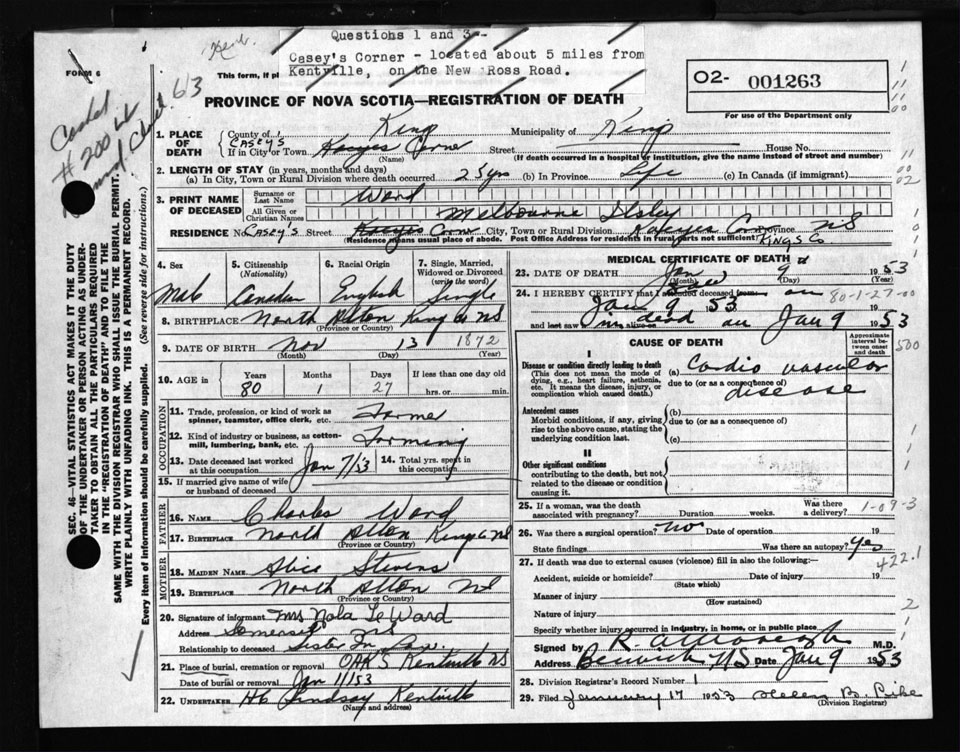 Kent.
Questions 1 and 3 -
Casey's Corner - located about 5 miles from
Kentville, on the New Ross Road.
FORM 6
63
This form, if pl
O2- 001263
For use of the Department only
PROVINCE OF NOVA SCOTIA—REGISTRATION OF DEATH
1. PLACE OF DEATH County of King Municipality of Kings
CASEY'S
If in City or Town Kaseyes Corne Street House No.
(Name) (If death occurred in a hospital or institution, give the name instead of street and number)
2. LENGTH OF STAY (in years, months and days)
(a) In City, Town or Rural Division where death occurred 25 yrs (b) In Province Life (c) In Canada (if immigrant)
3. PRINT NAME OF DECEASED Surname or Last Name Ward
All Given or Christian Names Melbourne Ilsley
RESIDENCE No. CASEY'S Street Corne City, Town or Rural Division Corne Province NS
(Residence means usual place of abode. Post Office Address for residents in rural parts not sufficient) KINGS CO
4. Sex Male
5. Citizenship (Nationality) Canadian
6. Racial Origin English
7. Single, Married, Widowed or Divorced (write the word) Single
8. BIRTHPLACE North Alton King Co NS
(Province or Country)
9. DATE OF BIRTH Nov 13 1872
(Month) (Day) (Year)
10. AGE in Years 80 Months 1 Days 27 If less than one day old hrs. or min.
OCCUPATION
11. Trade, profession, or kind of work as spinner, teamster, office clerk, etc. Farmer
12. Kind of industry or business, as cotton-mill, lumbering, bank, etc. Farming
13. Date deceased last worked at this occupation Jan 7/53 14. Total yrs. spent in this occupation
15. If married give name of wife or husband of deceased
FATHER
16. NAME Charles Ward
17. BIRTHPLACE North Alton Kings Co NS
(Province or Country)
MOTHER
18. MAIDEN NAME Alice Stevens
19. BIRTHPLACE North Alton NS
(Province or Country)
20. Signature of informant Mrs Nola Le Ward
Address Somerset NS
Relationship to deceased Sister In Law
21. Place of burial, cremation or removal OAKS Kentville NS
Date of burial or removal Jan 11/53
22. UNDERTAKER H C Lindsay Kentville
(Name and address)
MEDICAL CERTIFICATE OF DEATH
23. DATE OF DEATH Jan 9 1953
(Month) (Day)
24. I HEREBY CERTIFY that I attended deceased from on 80-1-27-00
Jan 9 53
and last saw him alive on dead on Jan 9 1953
CAUSE OF DEATH
Approximate interval between onset and death
500
I
Disease or condition directly leading to death (a) Cardio vascular
(This does not mean the mode of dying, e.g., heart failure, asthenia, etc. It means the disease, injury, or complication which caused death.) due to (or as a consequence of) disease
Antecedent causes (b)
Morbid conditions, if any, giving rise to the above cause, stating the underlying condition last. due to (or as a consequence of)
(c)
II
Other significant conditions
contributing to the death, but not related to the disease or condition causing it.
25. If a woman, was the death associated with pregnancy? Duration weeks. Was there a delivery? 1-09-3
26. Was there a surgical operation? No Date of operation 19
State findings Was there an autopsy? Yes
422.1
27. If death was due to external causes (violence) fill in also the following:—
Accident, suicide or homicide? Date of injury 19
(State which)
Manner of injury
(How sustained)
Nature of injury 2
Specify whether injury occurred in industry, in home, or in public place
Signed by M.D.
Address Berwick NS Date Jan 9 1953
28. Division Registrar's Record Number 1
29. Filed January 17 1953 Helen B. Pike
(Division Registrar)
SEC. 46—VITAL STATISTICS ACT MAKES IT THE DUTY
OF THE UNDERTAKER OR PERSON ACTING AS UNDER-
TAKER TO OBTAIN ALL THE PARTICULARS REQUIRED
IN THE "REGISTRATION OF DEATH" AND TO FILE THE
SAME WITH THE DIVISION REGISTRAR WHO SHALL ISSUE THE BURIAL PERMIT.
WRITE PLAINLY WITH UNFADING INK. THIS IS A PERMANENT RECORD.
Every item of information should be carefully supplied. (See reverse side for instructions.)